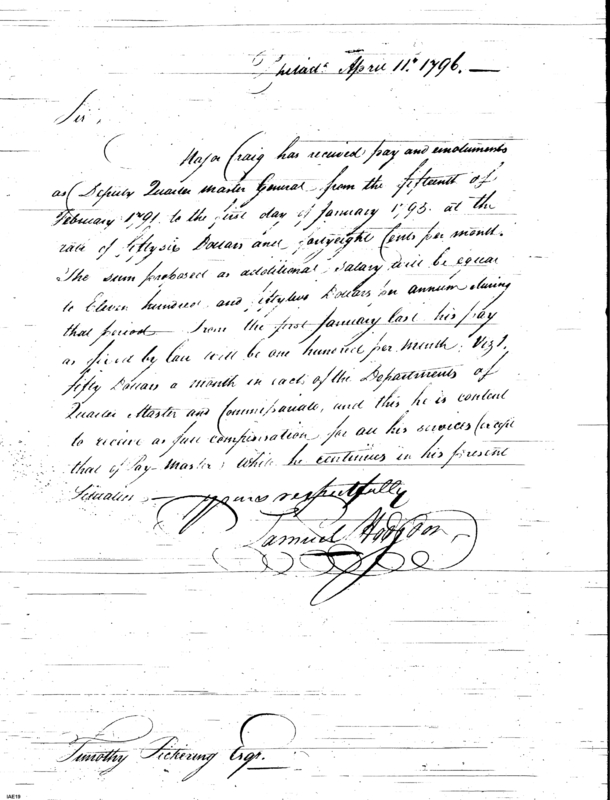 Philada April 11th 1796.
Sir,
Major Craig has received pay and emoluments
as Deputy Quarter Master General from the fifteenth of
February 1791. to the first day of January 1795. at the
rate of fifty six Dollars and forty eight Cents per month.
The sum proposed as additional salary will be equal
to Eleven hundred and fifty two Dollars per annum during
that period — From the first January last his pay
as fixed by Law will be one hundred per month; Vizt.
fifty Dollars a month in each of the Departments of
Quarter Master and Commissariate, and this he is content
to receive as full compensation for all his services (except
that of Pay-Master) while he continues in his present
situation —
yours respectfully
Samuel Hodgdon
Timothy Pickering Esqr.
IAE19